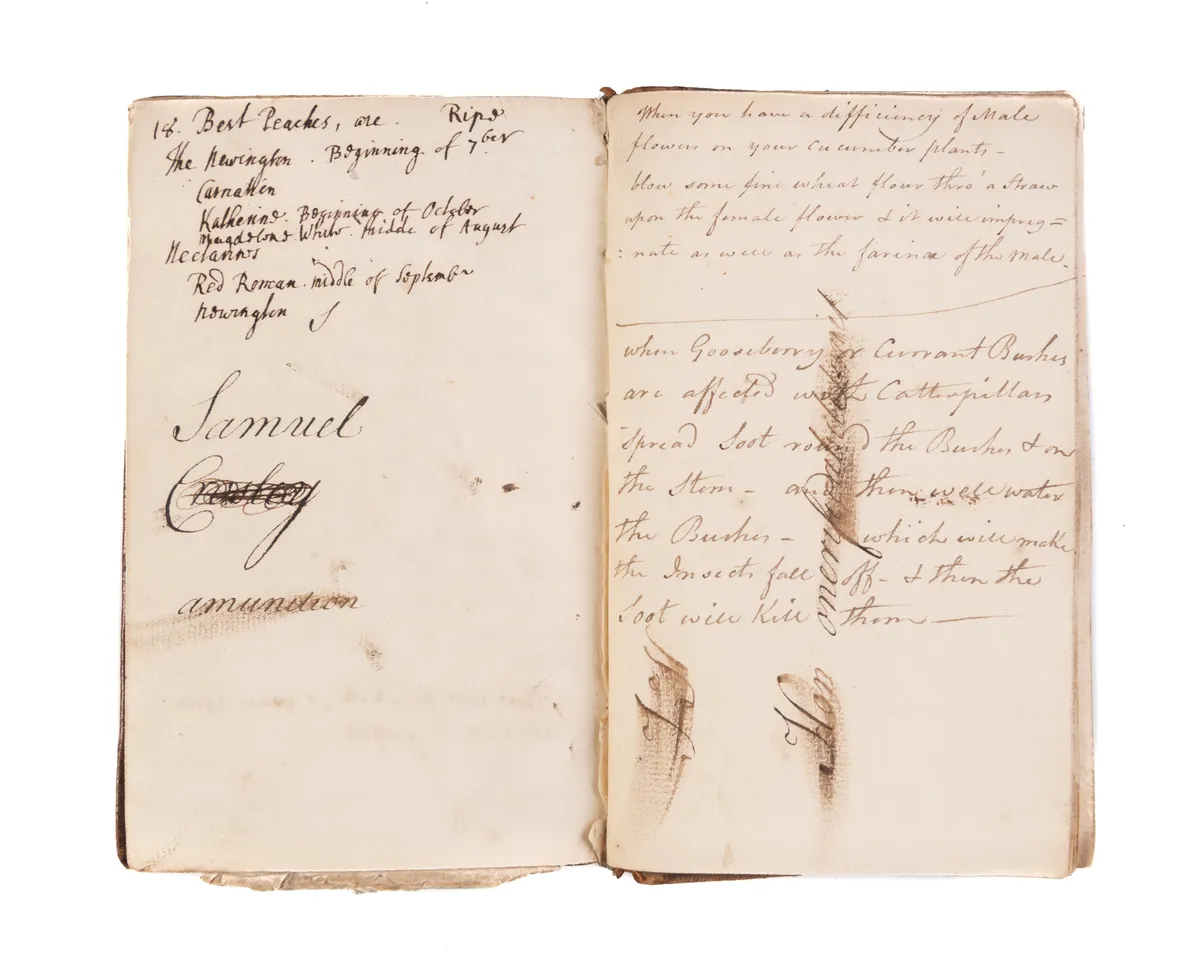 18. Best Peaches, are. Ripe
The Newington. Beginning of 7ber
Carnation
Katherine. Beginning of October
Magdelone White. middle of August
Nectarines
Red Roman. middle of September
Newington
Samuel
amunition
When you have a difficiency of Male
flowers on your cucumber plants -
blow some fine wheat flour thro' a Straw
upon the female flower & it will impreg=
=nate as well as the farina of the Male.
when Gooseberry or Currant Bushes
are affected with Catterpillars
spread Soot round the Bushes & on
the Stem - and then well water
the Bushes - which will make
the Insects fall off - & then the
Soot will Kill them
Hon